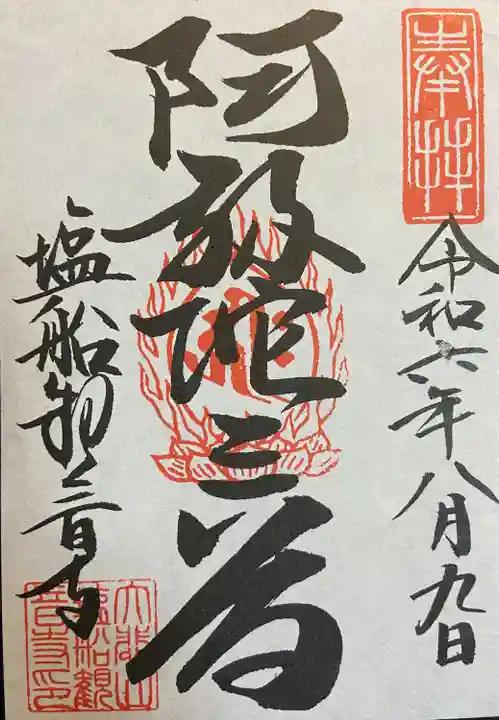 奉拝
令和六年八月九日
阿弥陀三尊
塩船観音寺
大悲山
塩船観
音寺印